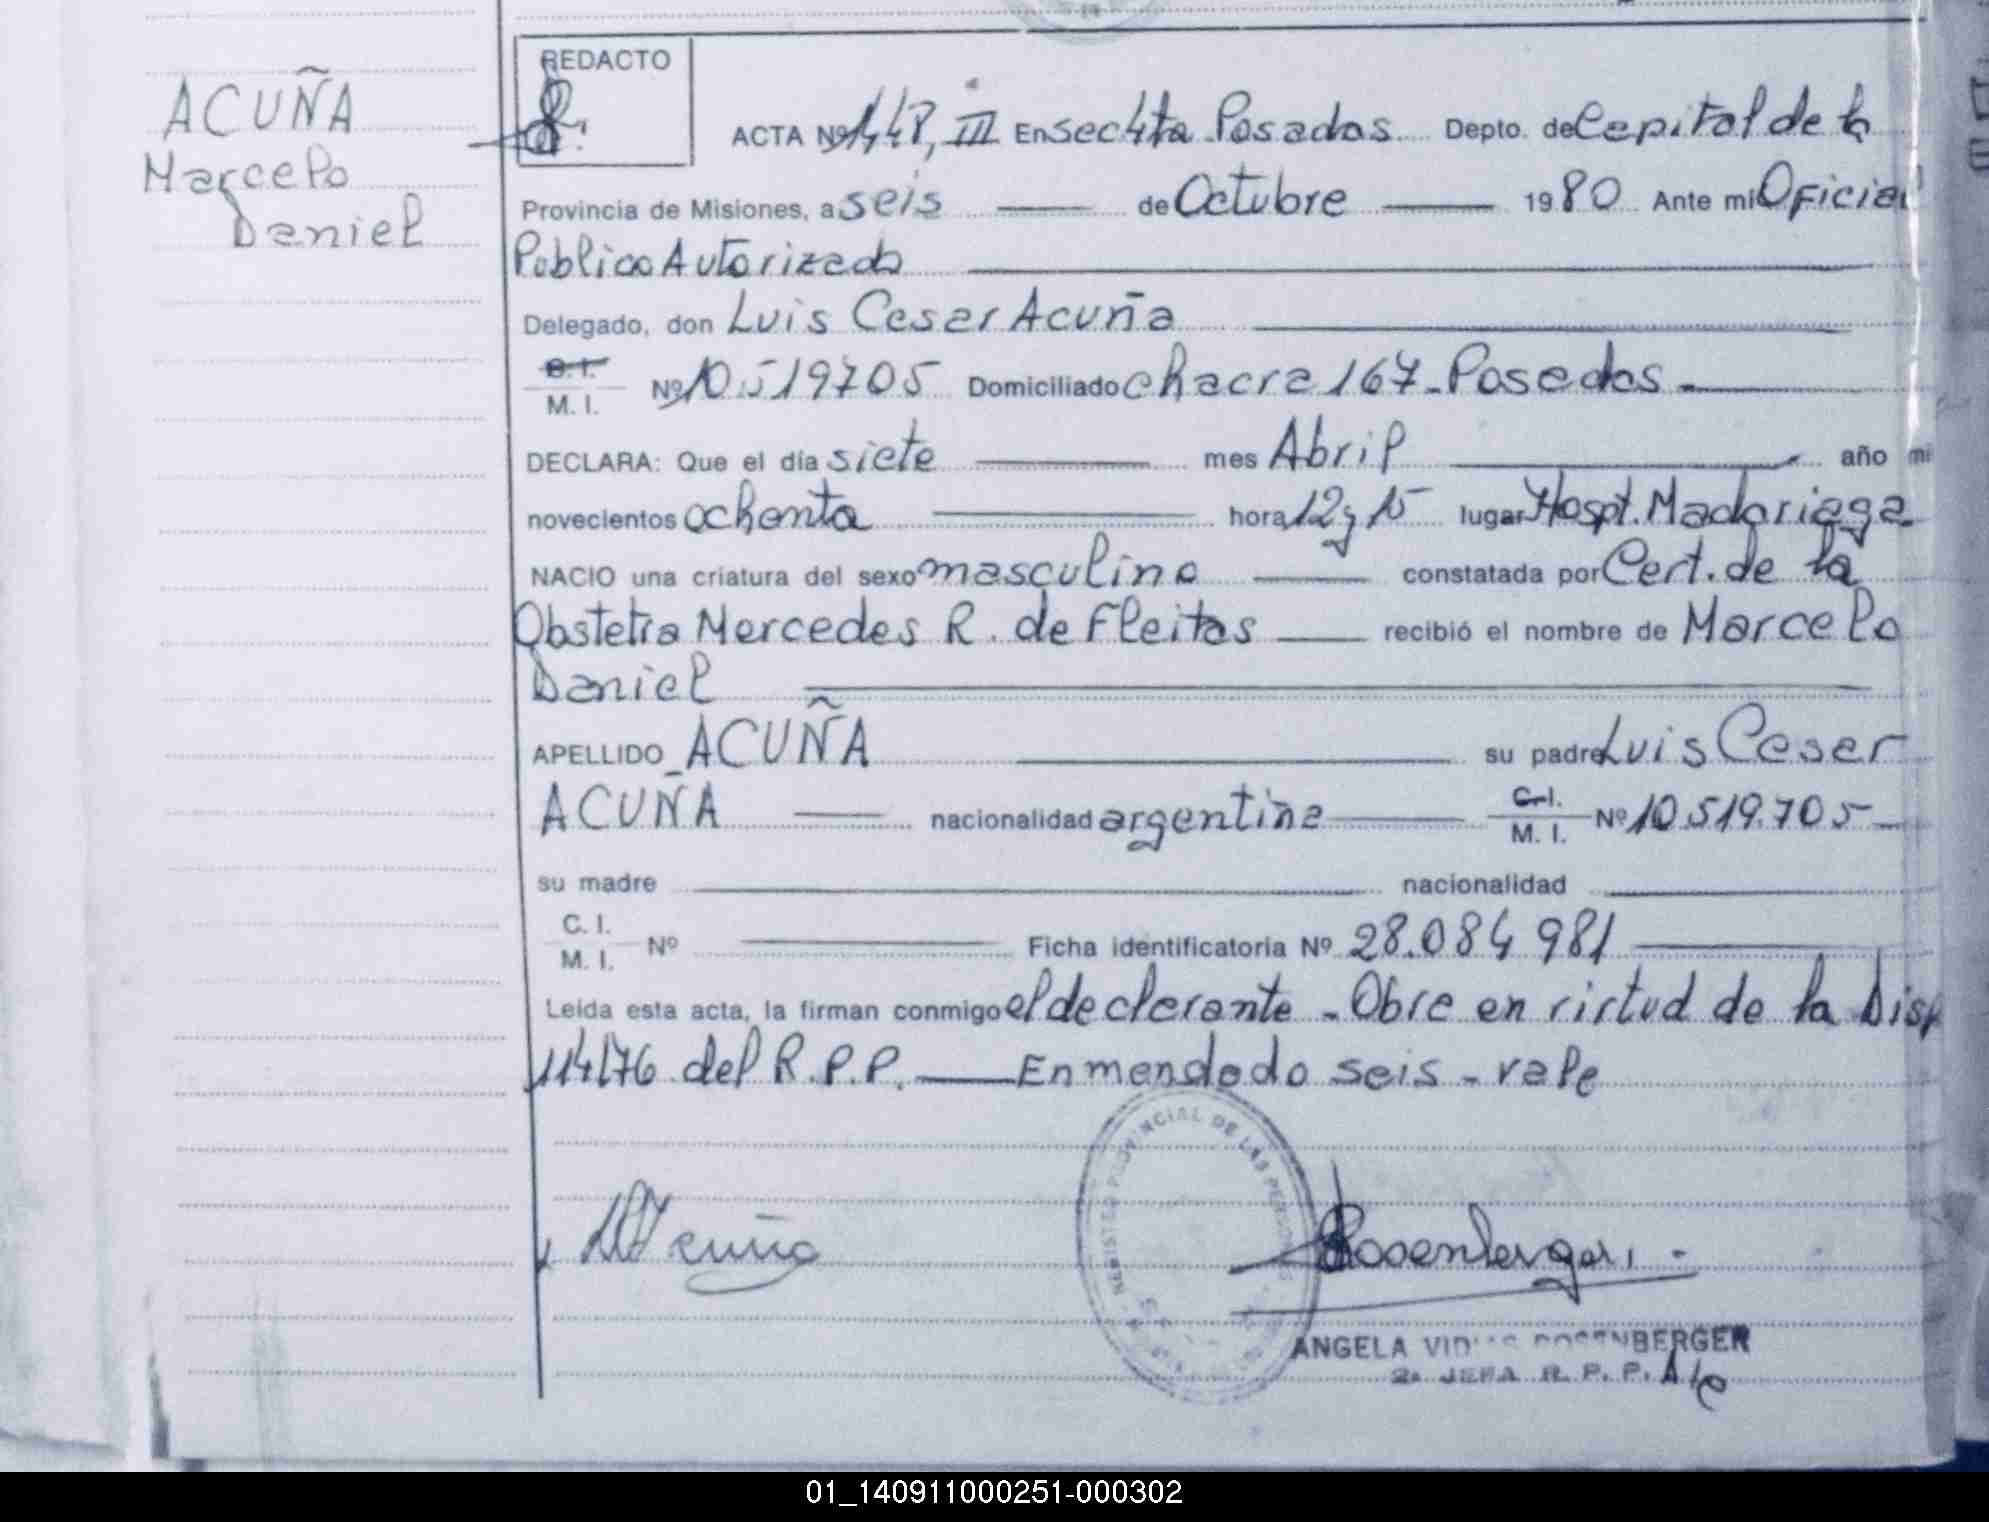 ACUÑA
Marcelo
Daniel
REDACTO
ACTA Nº 1,48, III En secc 4ta Posadas Depto. de Capital de la
Provincia de Misiones, a seis de Octubre 1980 Ante mi Oficial
Publico Autorizado
Delegado, don Luis Cesar Acuña
C. I.
M. I. Nº 10.519705 Domiciliado chacra 167 - Posadas -
DECLARA: Que el día siete mes Abril año mi
novecientos ochenta hora 12 y 15 lugar Hospt. Madariaga
NACIO una criatura del sexo masculino constatada por Cert. de la
Obstetra Mercedes R. de Fleitas recibió el nombre de Marcelo
Daniel
APELLIDO ACUÑA su padre Luis Cesar
ACUÑA nacionalidad argentina C. I.
M. I. Nº 10.519.705
su madre nacionalidad
C. I.
M. I. Nº Ficha identificatoria Nº 28.084 981
Leida esta acta, la firman conmigo el declarante - Obre en virtud de la Disp
114/76 del R.P.P. Enmendado seis - vale
Acuña
Rosenberger
REGISTRO PROVINCIAL DE LAS PERSONAS
ANGELA ROSENBERGER
2a JEFA R. P. P. A/c
01_140911000251-000302